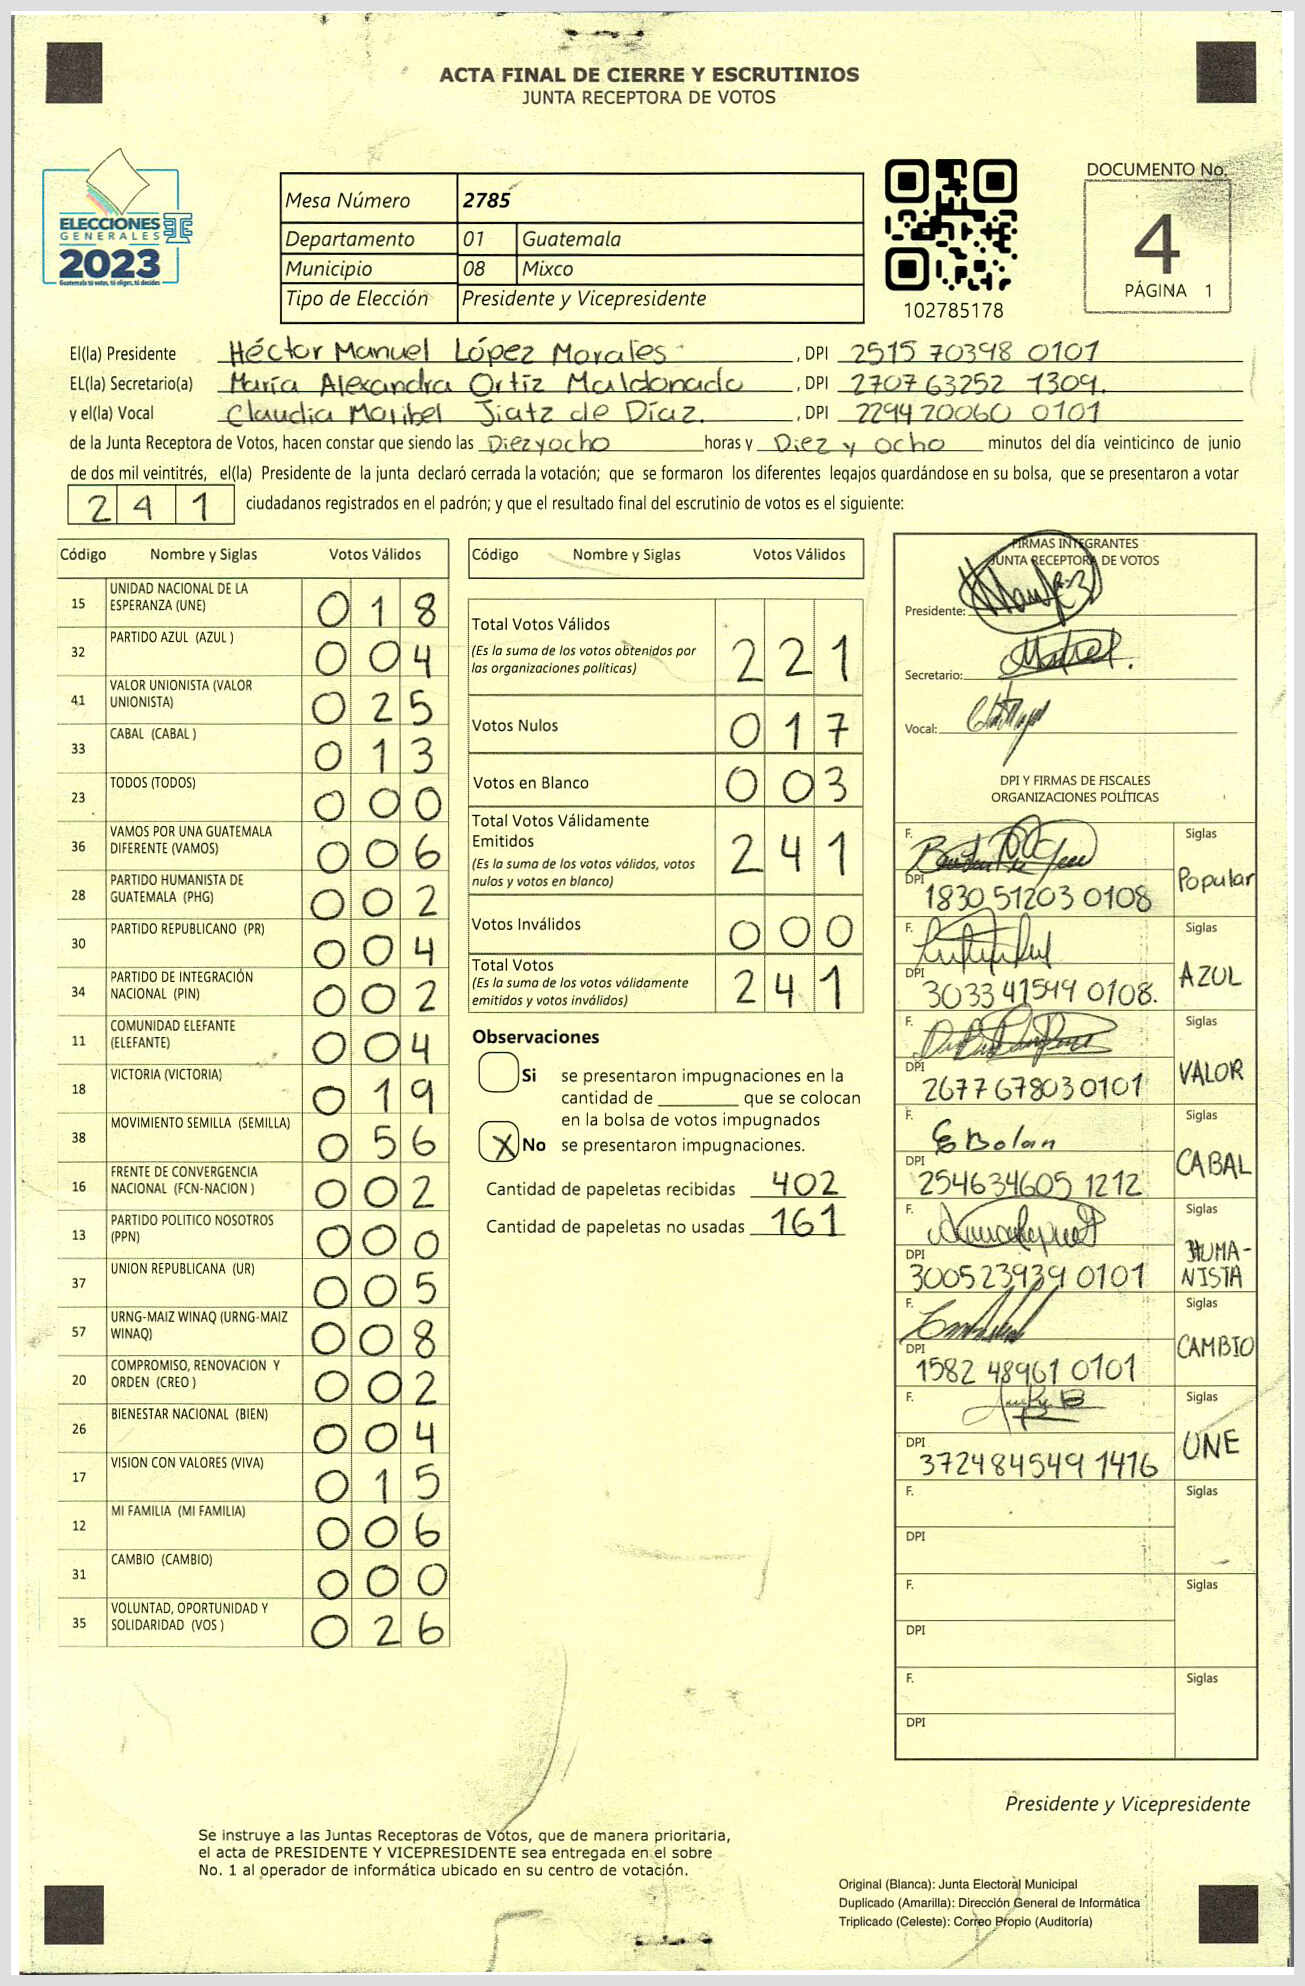 ACTA FINAL DE CIERRE Y ESCRUTINIOS
JUNTA RECEPTORA DE VOTOS
ELECCIONES
GENERALES
2023
Guatemala tú votas, tú eliges, tú decides
Mesa Número 2785
Departamento 01 Guatemala
Municipio 08 Mixco
Tipo de Elección Presidente y Vicepresidente
102785178
DOCUMENTO No.
4
PÁGINA 1
El(la) Presidente Héctor Manuel López Morales , DPI 2515 70398 0101
EL(la) Secretario(a) María Alexandra Ortíz Maldonado , DPI 2707 63252 1309.
y el(la) Vocal Claudia Maribel Jiatz de Díaz. , DPI 2294 20060 0101
de la Junta Receptora de Votos, hacen constar que siendo las Diezyocho horas y Diez y ocho minutos del día veinticinco de junio
de dos mil veintitrés, el(la) Presidente de la junta declaró cerrada la votación; que se formaron los diferentes legajos quardándose en su bolsa, que se presentaron a votar
241 ciudadanos registrados en el padrón; y que el resultado final del escrutinio de votos es el siguiente:
Código Nombre y Siglas Votos Válidos
15 UNIDAD NACIONAL DE LA ESPERANZA (UNE) 018
32 PARTIDO AZUL (AZUL ) 004
41 VALOR UNIONISTA (VALOR UNIONISTA) 025
33 CABAL (CABAL ) 013
23 TODOS (TODOS) 000
36 VAMOS POR UNA GUATEMALA DIFERENTE (VAMOS) 006
28 PARTIDO HUMANISTA DE GUATEMALA (PHG) 002
30 PARTIDO REPUBLICANO (PR) 004
34 PARTIDO DE INTEGRACIÓN NACIONAL (PIN) 002
11 COMUNIDAD ELEFANTE (ELEFANTE) 004
18 VICTORIA (VICTORIA) 019
38 MOVIMIENTO SEMILLA (SEMILLA) 056
16 FRENTE DE CONVERGENCIA NACIONAL (FCN-NACION ) 002
13 PARTIDO POLITICO NOSOTROS (PPN) 000
37 UNION REPUBLICANA (UR) 005
57 URNG-MAIZ WINAQ (URNG-MAIZ WINAQ) 008
20 COMPROMISO, RENOVACION Y ORDEN (CREO ) 002
26 BIENESTAR NACIONAL (BIEN) 004
17 VISION CON VALORES (VIVA) 015
12 MI FAMILIA (MI FAMILIA) 006
31 CAMBIO (CAMBIO) 000
35 VOLUNTAD, OPORTUNIDAD Y SOLIDARIDAD (VOS ) 026
Código Nombre y Siglas Votos Válidos
Total Votos Válidos 221
(Es la suma de los votos obtenidos por
las organizaciones políticas)
Votos Nulos 017
Votos en Blanco 003
Total Votos Válidamente
Emitidos 241
(Es la suma de los votos válidos, votos
nulos y votos en blanco)
Votos Inválidos 000
Total Votos 241
(Es la suma de los votos válidamente
emitidos y votos inválidos)
Observaciones
Si se presentaron impugnaciones en la
cantidad de ________ que se colocan
en la bolsa de votos impugnados
X No se presentaron impugnaciones.
Cantidad de papeletas recibidas 402
Cantidad de papeletas no usadas 161
FIRMAS INTEGRANTES
JUNTA RECEPTORA DE VOTOS
Presidente:
Secretario:
Vocal:
DPI Y FIRMAS DE FISCALES
ORGANIZACIONES POLÍTICAS
F. Siglas
DPI 1830 51203 0108 Popular
F. Siglas
DPI 3033 41549 0108. AZUL
F. Siglas
DPI 2677 67803 0101 VALOR
F. Bolan Siglas
DPI 254634605 1212 CABAL
F. Siglas
DPI 300523939 0101 HUMA-
NISTA
F. Siglas
DPI 1582 48961 0101 CAMBIO
F. Siglas
DPI 372484549 1416 UNE
F. Siglas
DPI
F. Siglas
DPI
F. Siglas
DPI
Presidente y Vicepresidente
Se instruye a las Juntas Receptoras de Votos, que de manera prioritaria,
el acta de PRESIDENTE Y VICEPRESIDENTE sea entregada en el sobre
No. 1 al operador de informática ubicado en su centro de votación.
Original (Blanca): Junta Electoral Municipal
Duplicado (Amarilla): Dirección General de Informática
Triplicado (Celeste): Correo Propio (Auditoría)